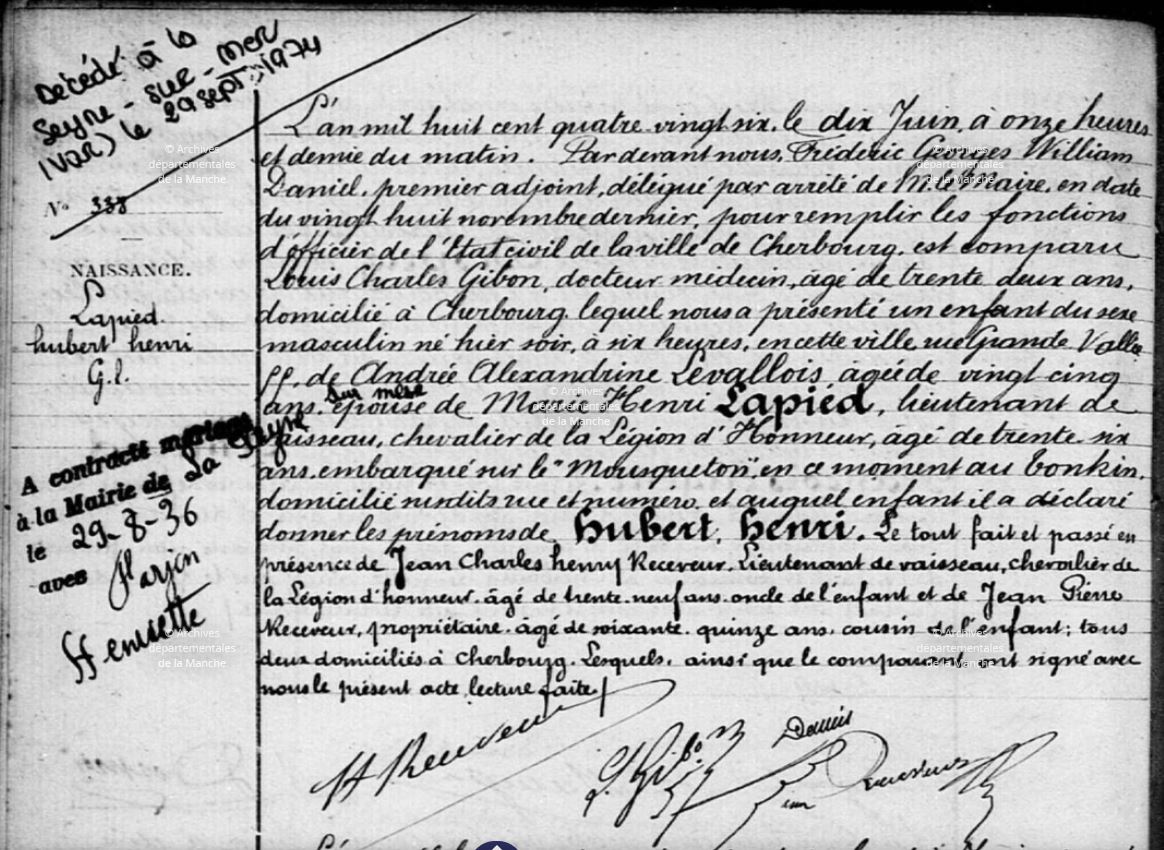 Décédé à la
Seyne-sur-mer
(Var) le 29 sept. 1974
N° 338
NAISSANCE.
Lapied
hubert henri
G.l.
A contracté mariage
à la Mairie de La Seyne
sur mer
le 29-8-36
avec Marjin
Henriette
L'an mil huit cent quatre vingt six, le dix Juin, à onze heures
et demie du matin. Par devant nous, Fréderic Georges William
Daniel, premier adjoint, délégué par arrêté de M. le Maire, en date
du vingt huit novembre dernier, pour remplir les fonctions
d'officier de l'Etat civil de la ville de Cherbourg, est comparu
Louis Charles Gibon, docteur médecin, âgé de trente deux ans,
domicilié à Cherbourg, lequel nous a présenté un enfant du sexe
masculin né hier soir, à six heures, en cette ville rue Grande Vallée
55, de Andrée Alexandrine Levallois, agée de vingt cinq
ans, épouse de Henri Lapied, lieutenant de
vaisseau, chevalier de la Légion d'Honneur, âgé de trente six
ans, embarqué sur le "Mousqueton", en ce moment au Tonkin,
domicilié susdits rue et numéro, et auquel enfant il a déclaré
donner les prénoms de hubert, henri. Le tout fait et passé en
présence de Jean Charles henry Receveur, Lieutenant de vaisseau, chevalier de
la Légion d'honneur, âgé de trente-neuf ans, oncle de l'enfant et de Jean Pierre
Receveur, propriétaire, âgé de soixante-quinze ans, cousin de l'enfant; tous
deux domiciliés à Cherbourg. Lesquels, ainsi que le comparant ont signé avec
nous le présent acte, lecture faite.
H Receveur
L. Gibon
Daniel
Jean Receveur
© Archives
départementales
de la Manche
© Archives
départementales
de la Manche
© Archives
départementales
de la Manche
© Archives
départementales
de la Manche
© Archives
départementales
de la Manche